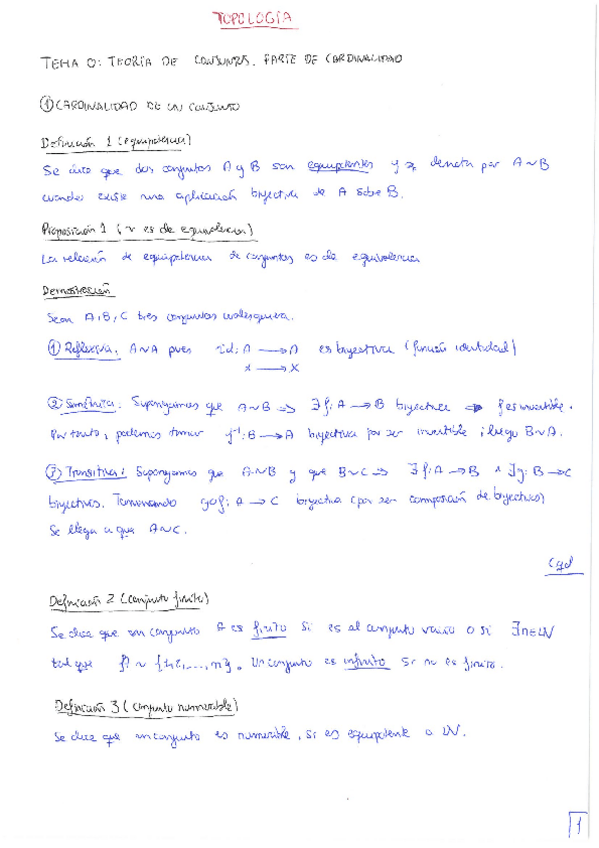 TOPOLOGÍA
TEMA 0: TEORÍA DE CONJUNTOS. PARTE DE CARDINALIDAD
① CARDINALIDAD DE UN CONJUNTO
Definición 1 (equipotencia)
Se dice que dos conjuntos A y B son equipotentes y se denota por A ~ B
cuando existe una aplicación biyectiva de A sobre B.
Proposición 1 (~ es de equivalencia)
La relación de equipotencia de conjuntos es de equivalencia
Demostración
Sean A, B, C tres conjuntos cualesquiera.
① Reflexiva: A~A pues id: A → A es biyectiva (función identidad)
x → x
② Simétrica: Supongamos que A~B => ∃ f: A → B biyectiva => f es invertible.
Por tanto, podemos tomar f⁻¹: B → A biyectiva por ser invertible, luego B~A.
③ Transitiva: Supongamos que A~B y que B~C => ∃ f: A → B ∧ ∃ g: B → C
biyectivas. Tomando g∘f: A → C biyectiva (por ser composición de biyectivas)
Se llega a que A~C.
cqd
Definición 2 (conjunto finito)
Se dice que un conjunto A es finito si es el conjunto vacío o si ∃n∈ℕ
tal que A ~ {1,2,...,n}. Un conjunto es infinito si no es finito.
Definición 3 (conjunto numerable)
Se dice que un conjunto es numerable, si es equipotente a ℕ.
1